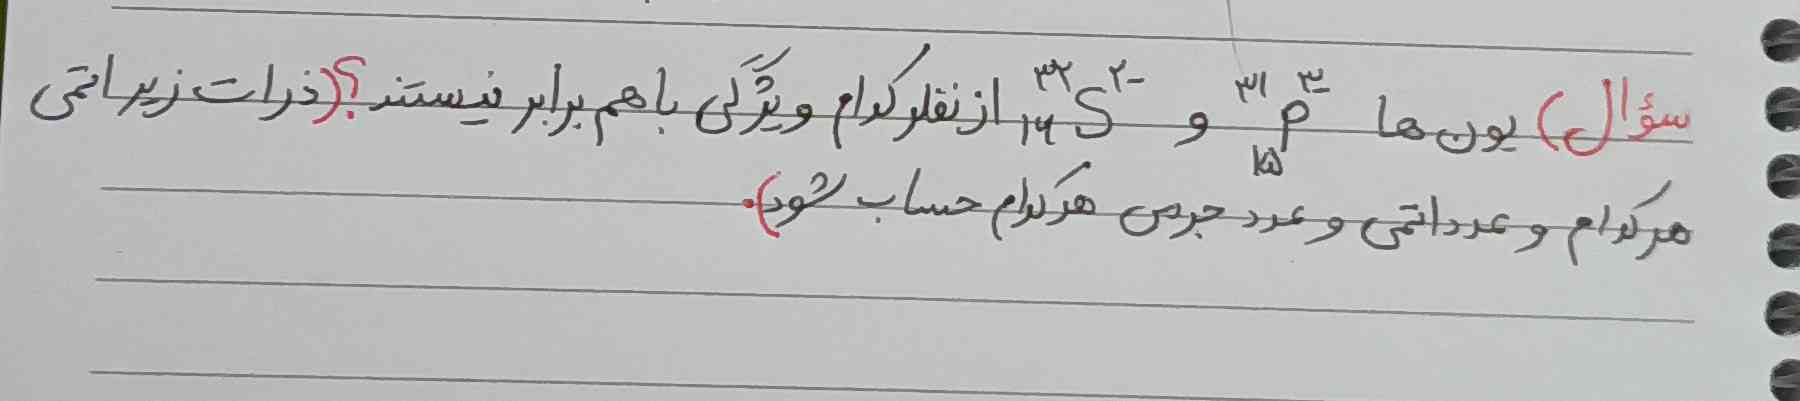 سؤال) یون ها ³¹₁₅P³⁻ و ³²₁₆S²⁻ از نظر کدام ویژگی با هم برابر نیستند؟ (ذرات زیر اتمی
هر کدام و عدد اتمی و عدد جرمی هر کدام حساب شود).